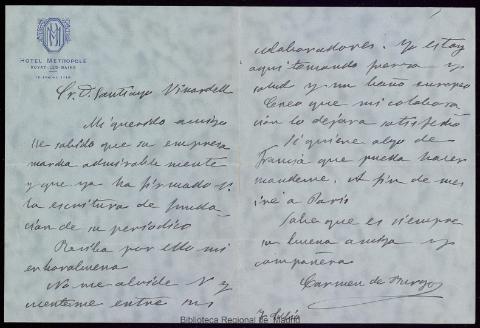 HOTEL METROPOLE
ROYAT-LES-BAINS
Sr. D. Santiago Vinardell
Mi querido amigo
He sabido que su empresa
marcha admirablemente
y que ya ha firmado V.
la escritura de funda-
ción de su periodico
Reciba por ello mi
enhorabuena
No me olvide V y
cuenteme entre sus
colaboradores. Yo estoy
aqui tomando fuerza y
salud y un baño europeo
Creo que mi colabora
ción lo dejara satisfecho
Si quiere algo de
Francia que pueda hacer
mandeme. A fin de mes
iré a Paris
Sabe que es siempre
su buena amiga y
compañera
Carmen de Burgos
7 Julio
Biblioteca Regional de Madrid